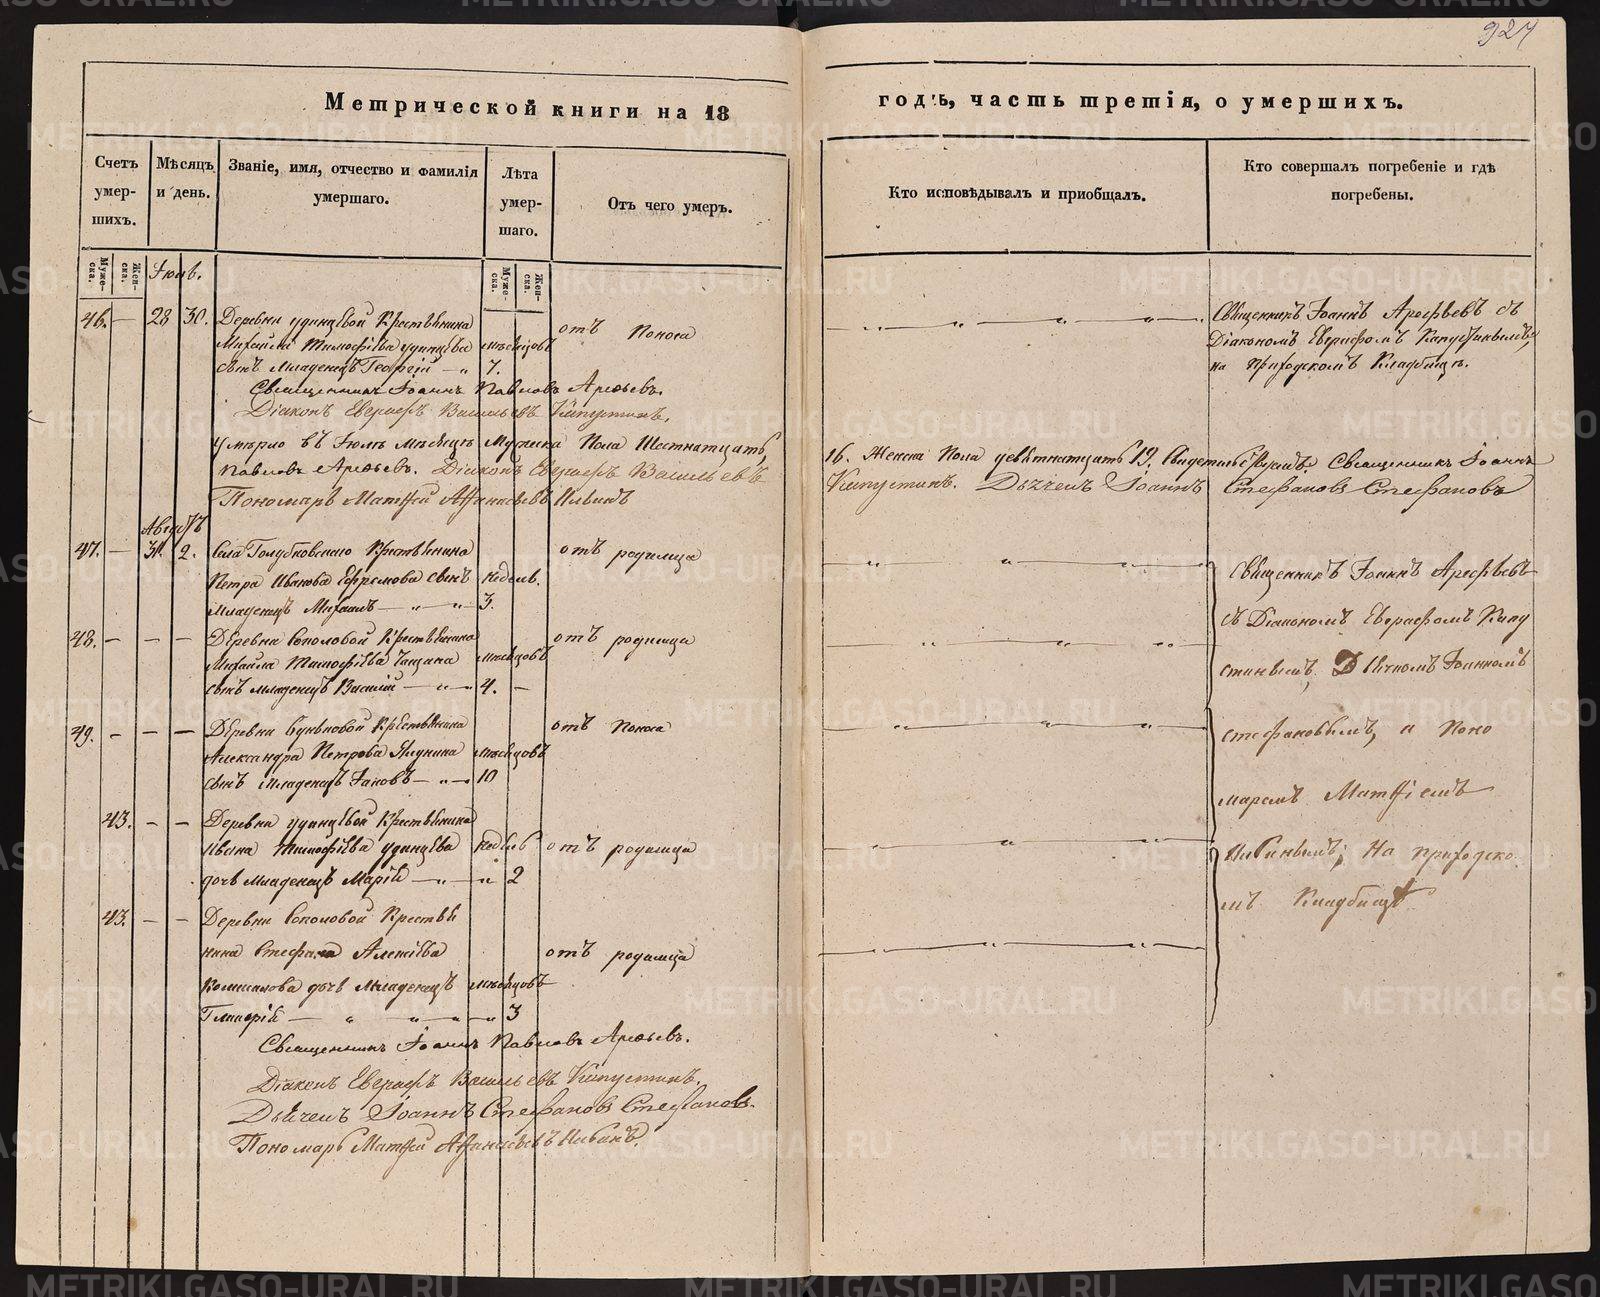 924
Метрической книги на 18
годъ, часть третія, о умершихъ.
Счетъ умер-шихъ.
Мѣсяцъ и день.
Званіе, имя, отчество и фамилія умершаго.
Лѣта умер-шаго.
Отъ чего умеръ.
Кто исповѣдывалъ и приобщалъ.
Кто совершалъ погребеніе и гдѣ погребены.
Муже-ска.
Жен-ска.
Іюль.
Муже-ска.
Жен-ска.
46. — 28 30. Деревни Удинцевой Крестьянина
Михайла Тимофѣева Удинцева мѣсяцовъ
сынъ младенецъ Георгій — „ 7.
отъ поноса
Священникъ Іоаннъ Арефьевъ съ
Діакономъ Евграфомъ Капустинымъ,
на приходскомъ Кладбищѣ.
Священникъ Іоаннъ Павловъ Арефьевъ.
Діаконъ Евграфъ Васильевъ Капустинъ.
Умерло въ Іюлѣ мѣсяцѣ Мужеска Пола Шестнатцать,
16. Женска Пола девятнатцать 19. Священникъ Іоаннъ
Павловъ Арефьевъ. Діаконъ Евграфъ Васильевъ
Капустинъ. Дьячекъ Іоаннъ Стефановъ Стефановъ
Пономарь Матѳей Аѳанасьевъ Ильинъ
Августъ
47. — 31. 2. Села Голубковскаго Крестьянина
Петра Иванова Ефремова сынъ недель.
младенецъ Михаилъ — „ — „ 3.
отъ родимца
48. — — — Деревни Соколовой Крестьянина
Михайла Тимофѣева мѣсяцовъ
сынъ младенецъ Василій — „ — 4. —
отъ родимца
49. — — — Деревни Крестьянина
Александра Петрова мѣсяцовъ
сынъ младенецъ Іаковъ — „ — 10
отъ поноса
43. — — Деревни Удинцевой Крестьянина
Ивана Тимофѣева Удинцева недель
дочь младенецъ Марія — „ — „ 2
отъ родимца
43. — — Деревни Соколовой Крестья
нина Стефана Алексѣева
дочь младенецъ мѣсяцовъ
Гликерія — „ „ „ — „ 3
отъ родимца
Священникъ Іоаннъ Арефьевъ
съ Діакономъ Евграфомъ Капу
стинымъ, Дьячкомъ Іоанномъ
Стефановымъ, и Поно
маремъ Матѳіемъ
Ильинымъ; На приходско
мъ Кладбищѣ
Священникъ Іоаннъ Павловъ Арефьевъ.
Діаконъ Евграфъ Васильевъ Капустинъ.
Дьячекъ Іоаннъ Стефановъ Стефановъ.
Пономарь Матѳей Аѳанасьевъ Ильинъ.
METRIKI.GASO-URAL.RU